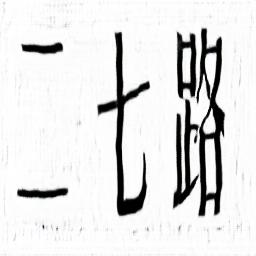 二七路